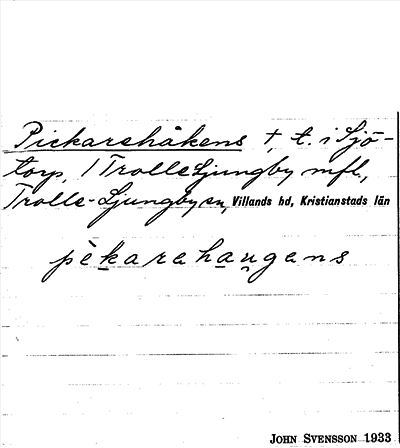 Pickarshåkens †, t. i Sjö-
torp, 1 Trolle Ljungby mfl.,
Trolle-Ljungby sn, Villands hd, Kristianstads län
pèkarahau̯gans
JOHN SVENSSON 1933